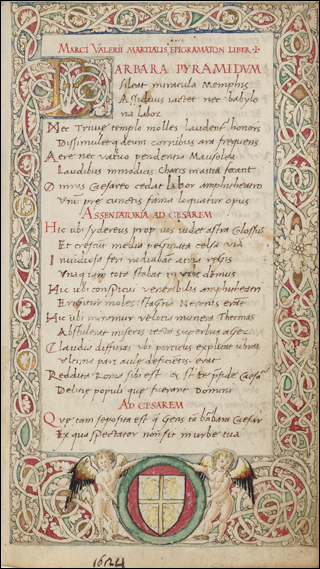 MARCI VALERII MARTIALIS EPIGRAMATON LIBER·I·
BARBARA PYRAMIDVM
sileat miracula Memphis
Assiduus iactet nec babylo
na labor
Nec Trivie templo molles laudent honores
Dissimulet q deum cornibus ara frequens
Aere nec vacuo pendentia Mausolea
Laudibus inmodicis Chares in astra ferant
Omnis Caesareo cedat labor amphitheatro
Vnum pre cunctis fama loquatur opus
ASSENTATORIA AD CESAREM
Hic ubi sydereus prop ius videt astra Colossus
Et crescunt media pegmata celsa via
Invidiosa feri radiabant atria regis
Vnaq iam tota stabat in urbe domus
Hic ubi conspicui venerabilis amphitheatri
Erigitur moles: stagna Neronis erant
Hic ubi miramur velocia munera Thermas
Abstulerat miseris tecta superbus ager
Claudia diffusas ubi porticus explicat umbras
Ultima pars aule deficientis erat
Reddita Roma sibi est & st te pside Caesar
Delicie populi que fuerant domini
AD CESAREM
Que tam seposita est q Gens tā babara Caesar
Ex qua spectator non sit in urbe tua
1624